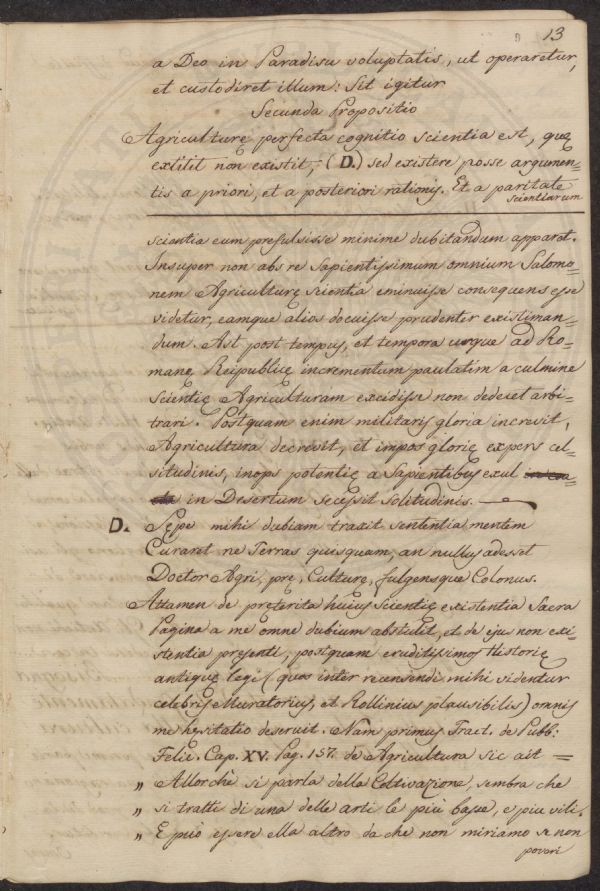 13
a Deo in Paradisu voluptatis, ut operaretur,
et custodiret illum: Sit igitur
Secunda Propositio
Agriculturę perfecta cognitio scientia est, quę
extitit non existit, (D.) sed existere posse argumen=
tis a priori, et a posteriori rationis. Et a paritate
scientiarum
scientia eum prefulsisse minime dubitandum apparet.
Insuper non abs re Sapientissimum omnium Salomo=
nem Agriculturę scientia eminuisse consequens esse
videtur, eamque alios docuisse prudenter existiman=
dum. Ast post tempus, et tempora usque ad Ro=
manę Reipublicę incrementum paulatim a culmine
scientię Agriculturam excidisse non dedecet arbi=
trari. Postquam enim militaris gloria increvit,
Agricultura decrevit, et impos glorię expers cel=
situdinis, inops potentię a Sapientibus exul
in Desertum secessit solitudinis.
D. Sępe mihi dubiam traxit sententia mentem
Curaret ne Terras quisquam, an nullus adesset
Doctor Agri, pre, Culturę, fulgensque Colonus.
Attamen de pręterita huius Scientię existentia Sacra
Pagina a me omne dubium abstulit, et de ejus non exi=
stentia presenti, postquam eruditissimos Historię
antiquę legi (quos inter recensendi mihi videntur
celebris Muratorius, et Rollinius plausibilis) omnis
me hęsitatio deseruit. Nam primus Tract. de Publ:
Felic. Cap. XV. Pag. 157. de Agricultura sic ait =
„ Allorchè si parla della Coltivazione, sembra che
„ si tratti di una delle arti le più basse, e più vili.
„ E può essere ella altro da che non miriamo se non
poveri